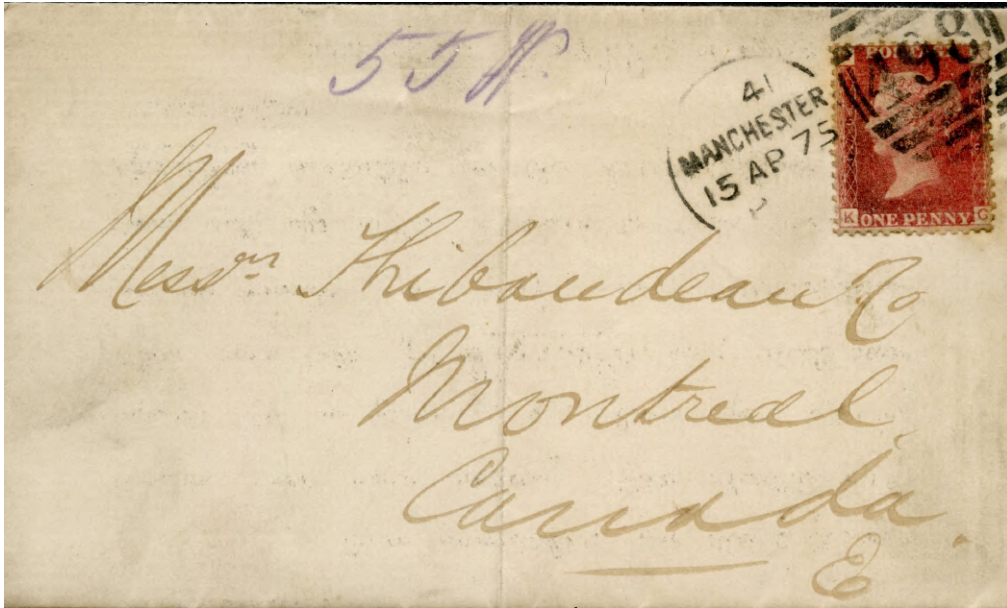 55 W.
41
MANCHESTER
15 AP 75
498
ONE PENNY
K G
Messrs Thibaudeau & Co
Montreal
Canada
E